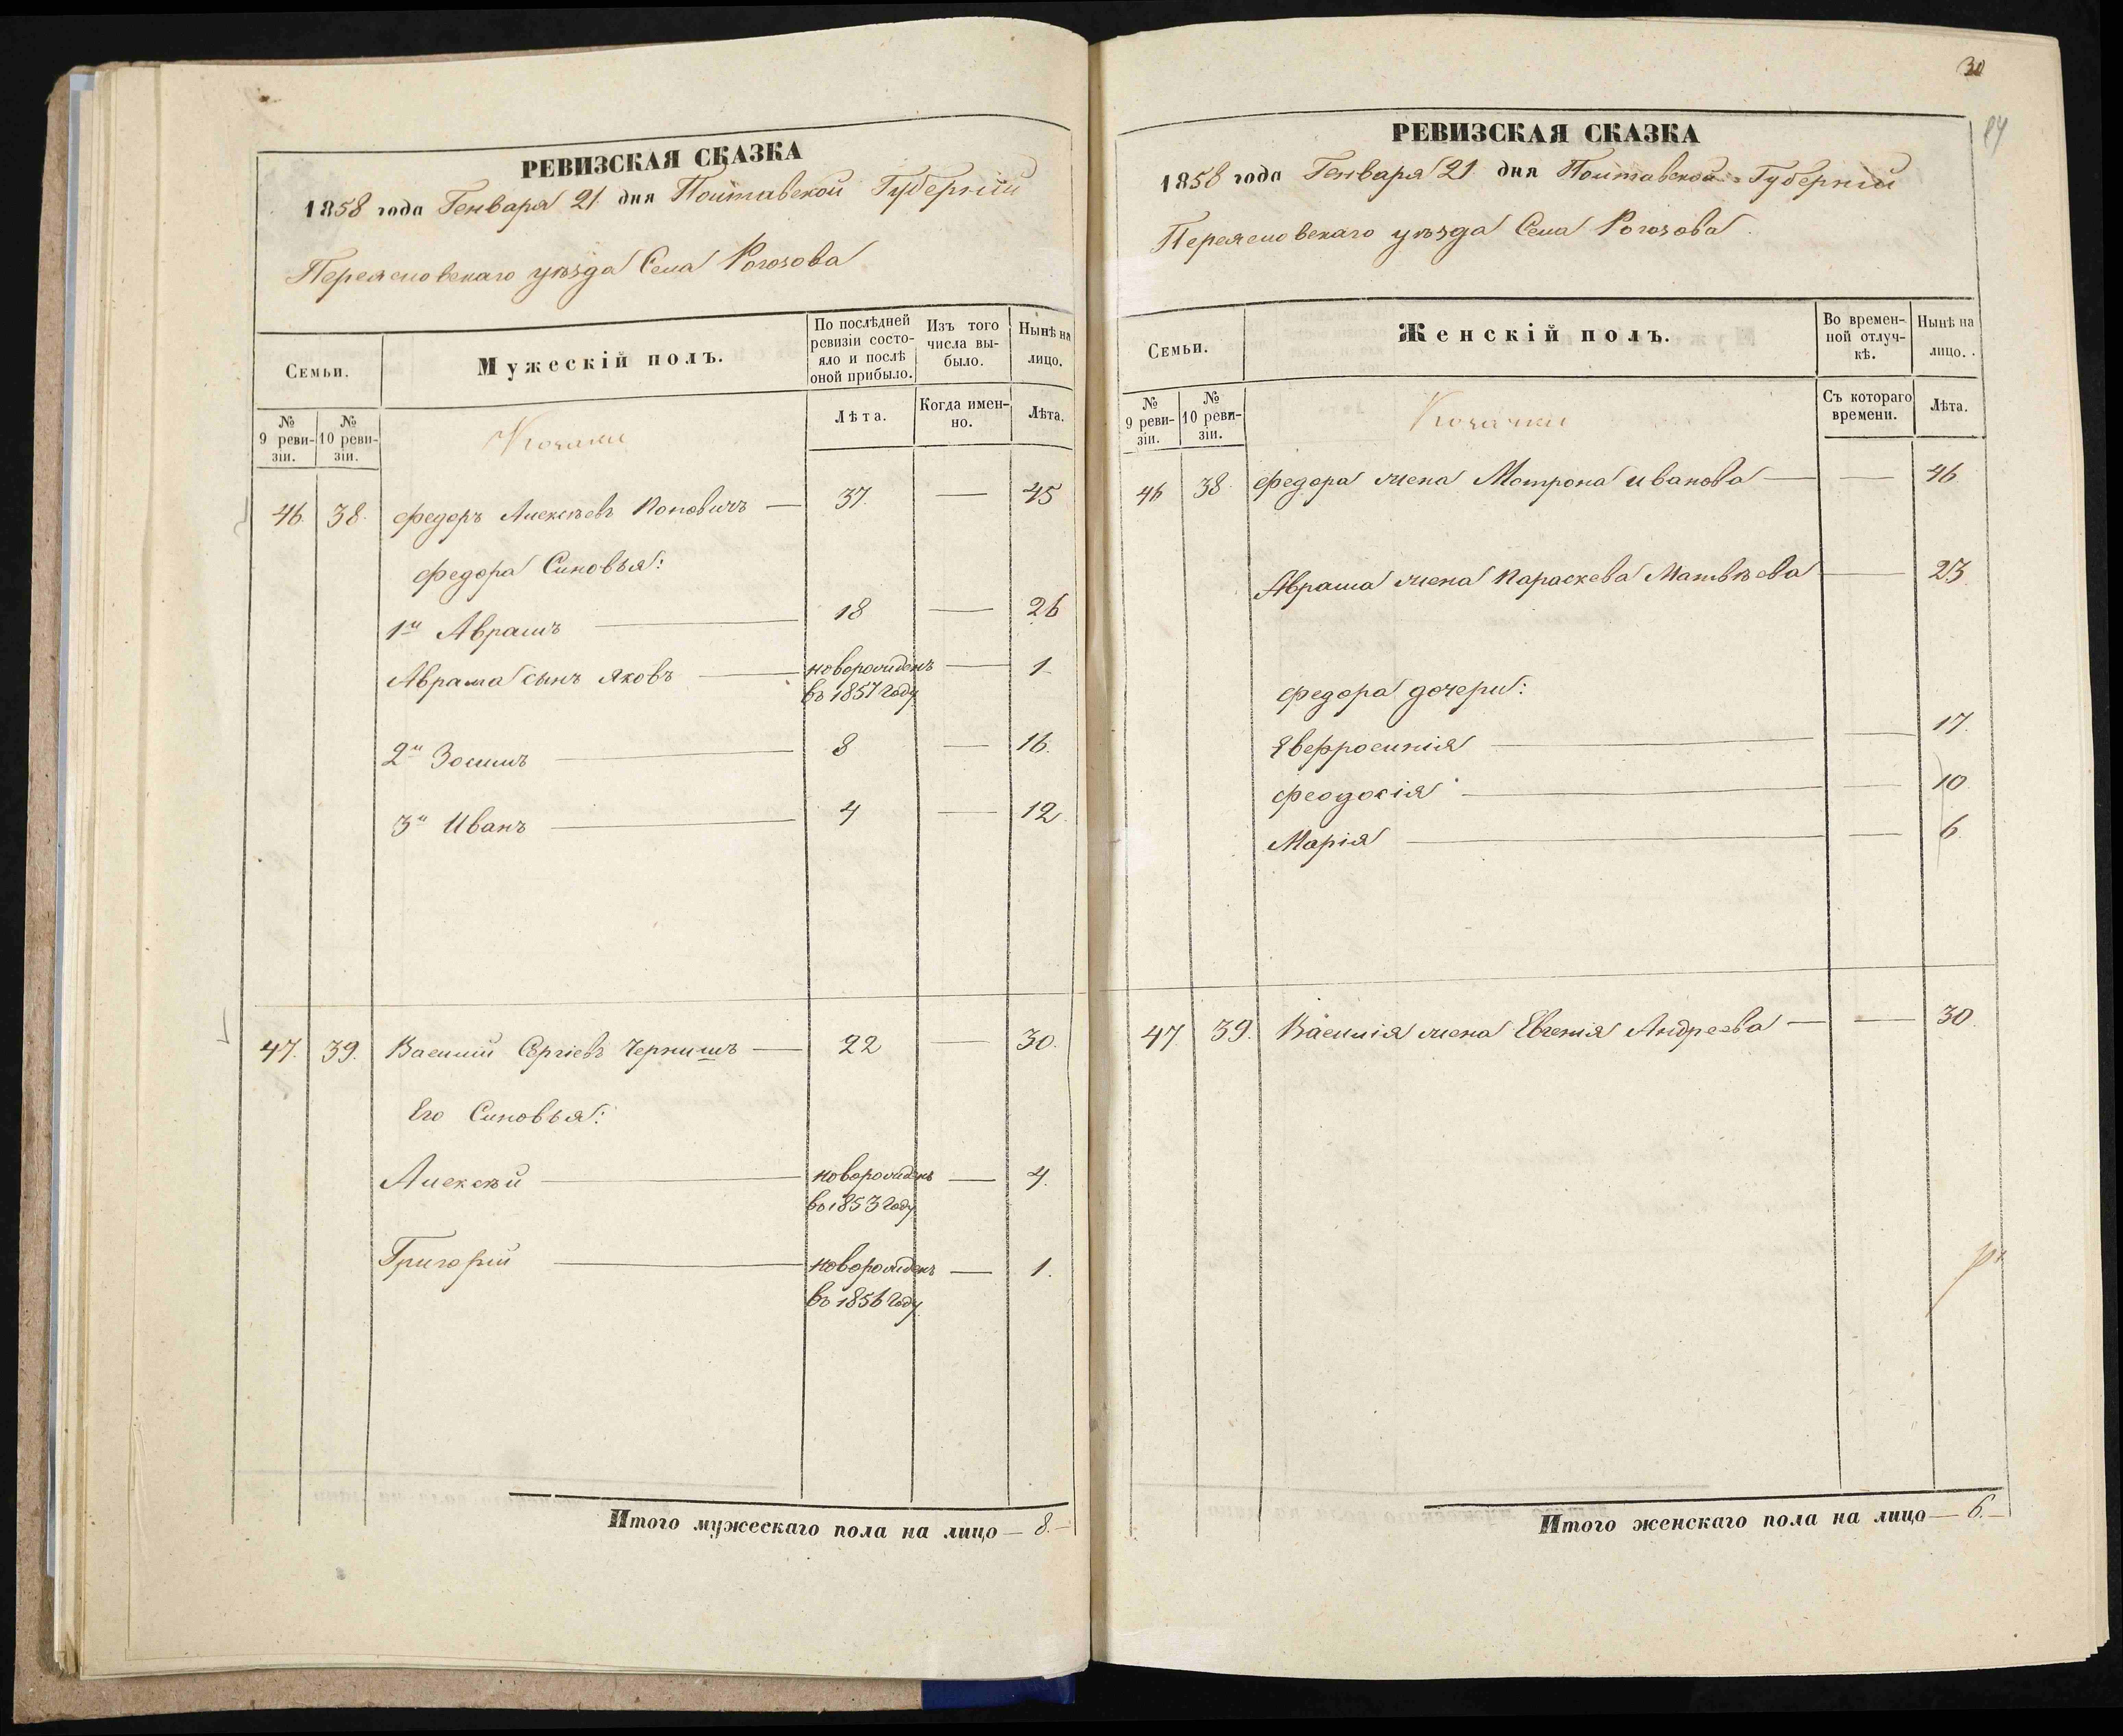 РЕВИЗСКАЯ СКАЗКА
1858 года Генваря 21 дня Полтавской Губерніи
Переяславскаго уѣзда Села Рогозова
Семьи.
Мужескій полъ.
По послѣдней ревизіи состо-
яло и послѣ
оной прибыло.
Изъ того
числа вы-
было.
Нынѣ на
лицо.
№
9 реви-
зіи.
№
10 реви-
зіи.
Козаки
Лѣта.
Когда имен-
но.
Лѣта.
46. 38. Федоръ Алексѣевъ Поповичъ — 37. — 45
Федора Синовья:
1й Аврамъ — 18 — 26
Аврама сынъ Яковъ — новорожденъ — 1
въ 1857 году
2й Зосимъ — 8 — 16.
3й Иванъ — 4 — 12.
47. 39. Василій Сергіевъ Чернишъ — 22 — 30.
Его Синовья:
Алексѣй — новорожденъ — 4.
во 1853 году
Григорій — новорожденъ — 1.
во 1856 году
Итого мужескаго пола на лицо — 8. —
30
84
РЕВИЗСКАЯ СКАЗКА
1858 года Генваря 21 дня Полтавской Губерніи
Переяславскаго уѣзда Села Рогозова
Семьи.
Женскій полъ.
Во времен-
ной отлуч-
кѣ.
Нынѣ на
лицо.
№
9 реви-
зіи.
№
10 реви-
зіи.
Козачки
Съ котораго
времени.
Лѣта.
46 38. Федора жена Мотрона Иванова — — 46
Аврама жена Параскева Матвѣева — 23.
Федора дочери:
Евфросинія — — 17.
Феодосія — — 10
Марія — — 6.
47 39. Василія жена Евгенія Андреева — — 30.
Итого женскаго пола на лицо — 6. —